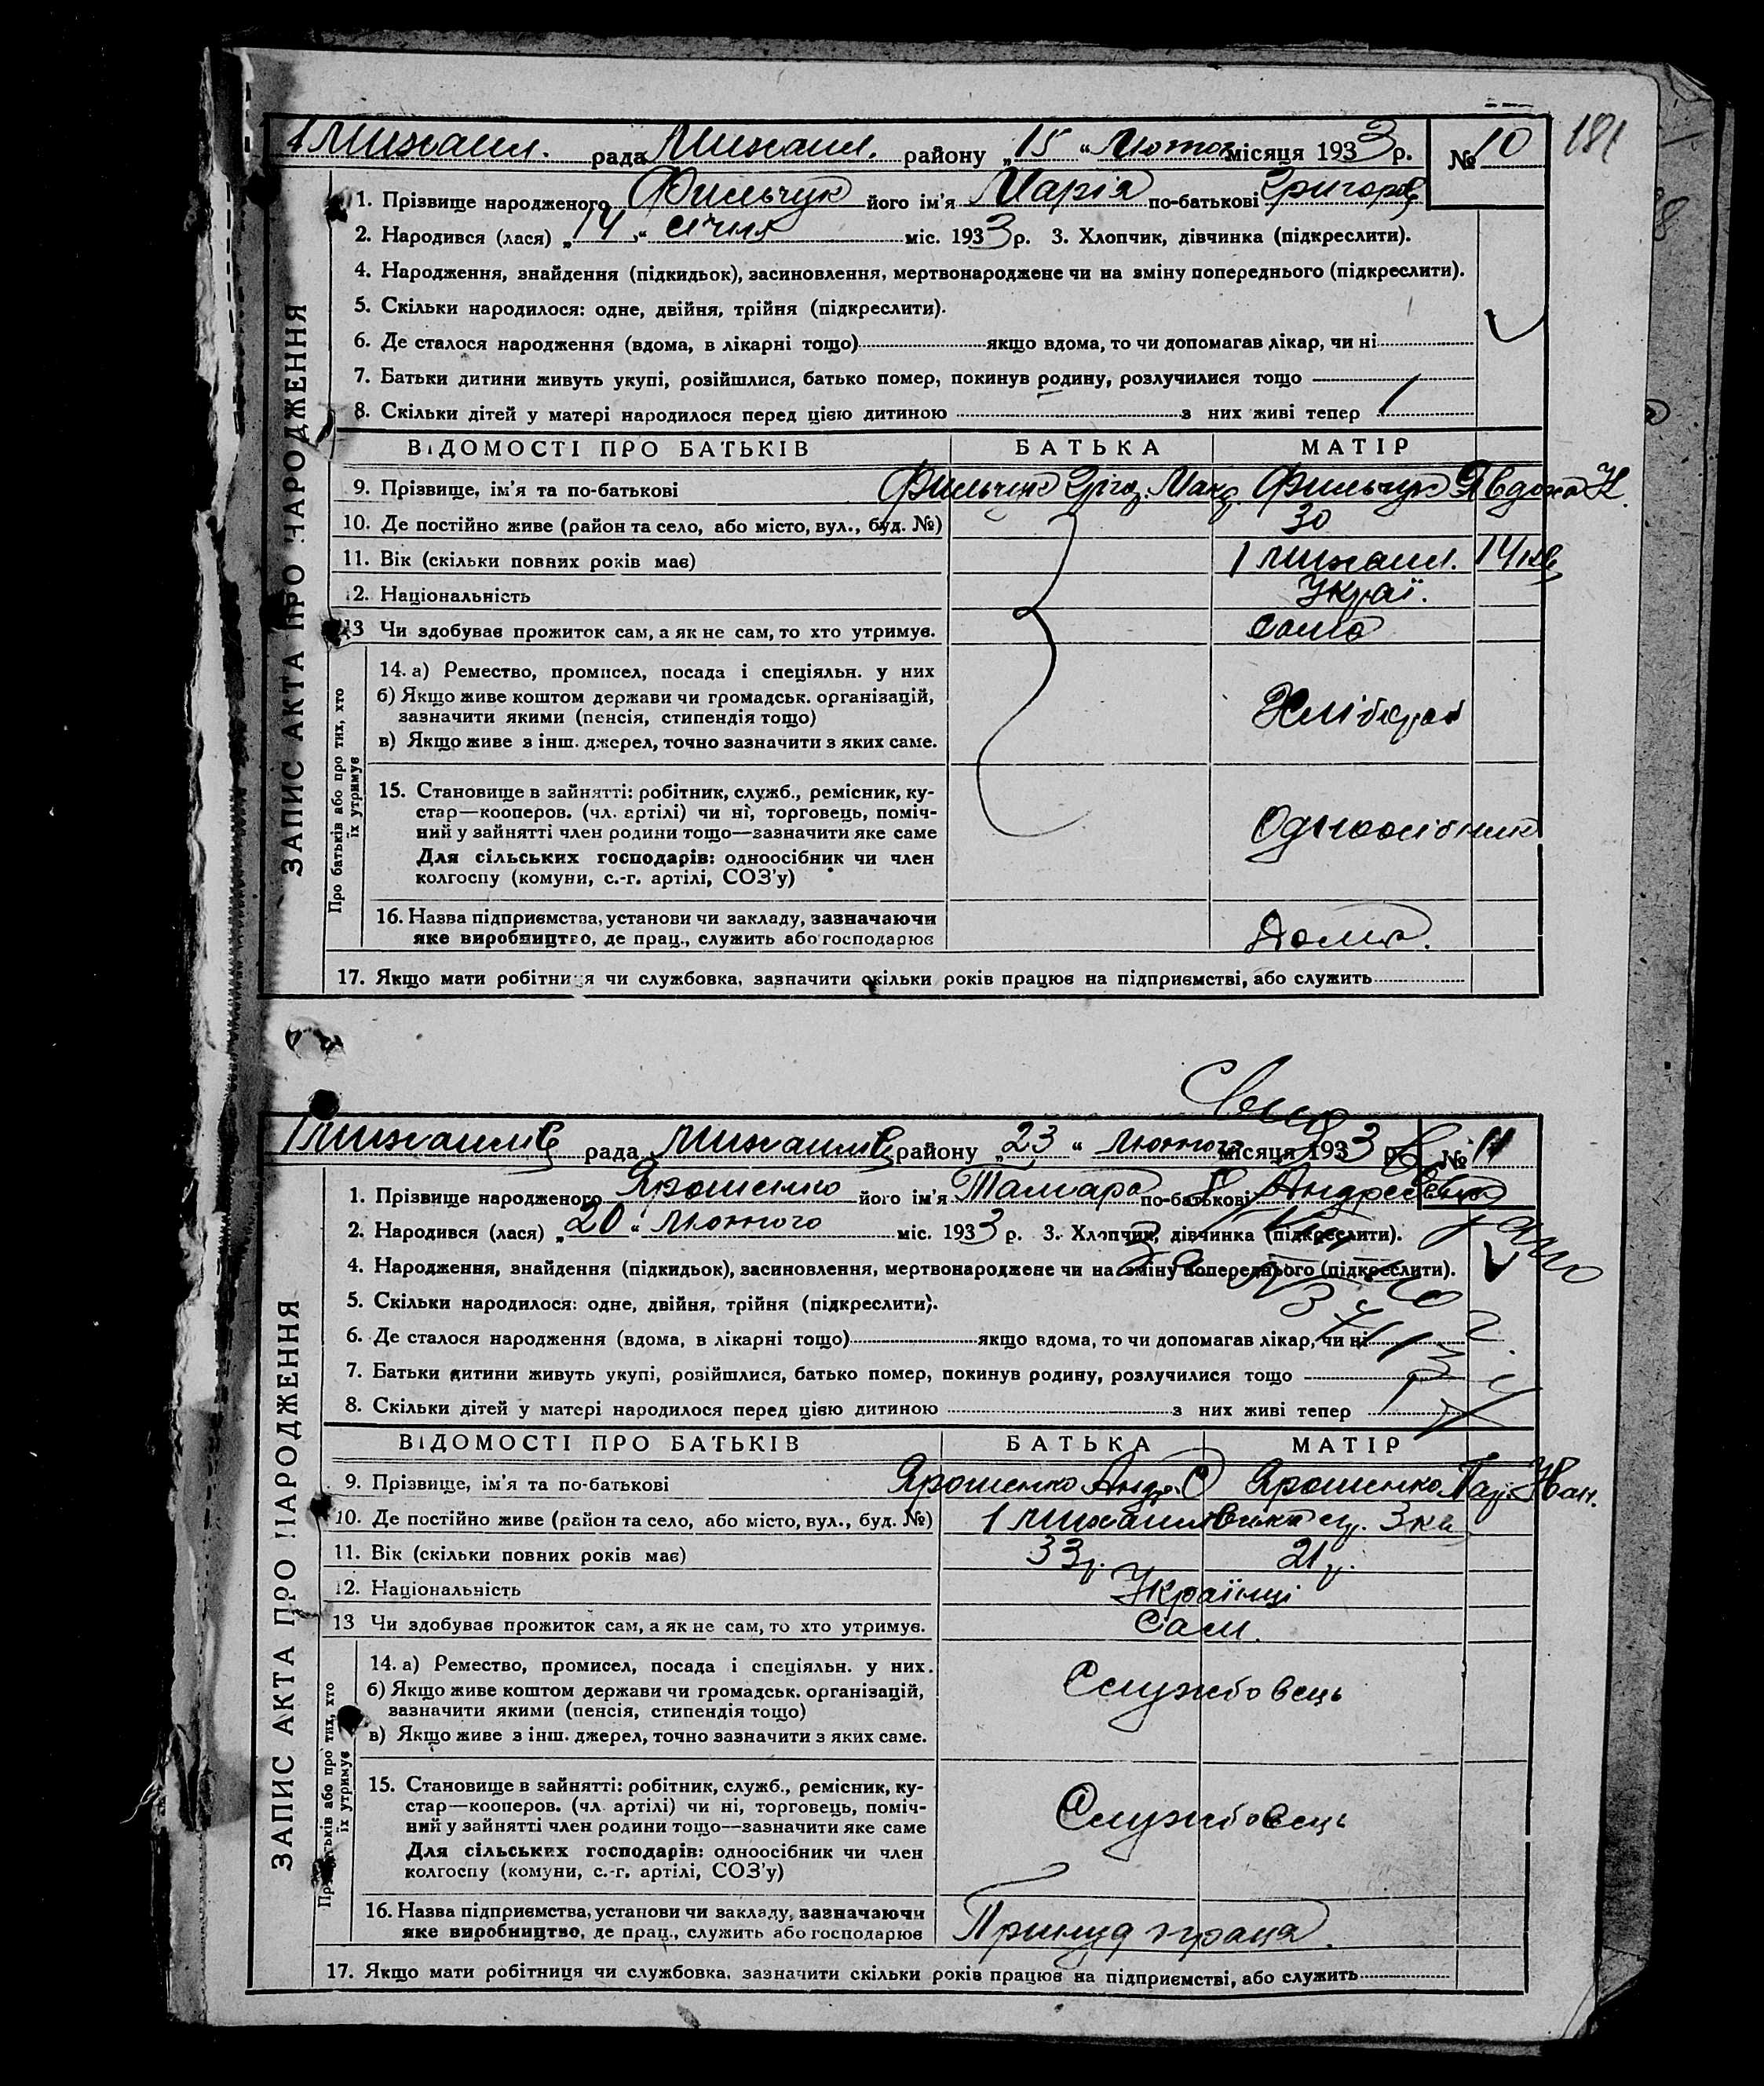 181
1 Михаил. рада Михаил. району „15“ Лютого місяця 1933 р. № 10
ЗАПИС АКТА ПРО НАРОДЖЕННЯ
1. Прізвище народженого Фильчук його ім'я Марія по-батькові Григоров
2. Народився (лася) „14“ січня міс. 1933 р. 3. Хлопчик, дівчинка (підкреслити).
4. Народження, знайдення (підкидьок), засиновлення, мертвонароджене чи на зміну попереднього (підкреслити).
5. Скільки народилося: одне, двійня, трійня (підкреслити).
6. Де сталося народження (вдома, в лікарні тощо) якщо вдома, то чи допомагав лікар, чи ні
7. Батьки дитини живуть укупі, розійшлися, батько помер, покинув родину, розлучилися тощо
8. Скільки дітей у матері народилося перед цією дитиною з них живі тепер
ВІДОМОСТІ ПРО БАТЬКІВ БАТЬКА МАТІР
9. Прізвище, ім'я та по-батькові Фильчук Григ. Мак. Фильчук Явдоха Н.
10. Де постійно живе (район та село, або місто, вул., буд. №) 30
11. Вік (скільки повних років має) 1 михаил. 14 кв
12. Національність Украї.
13 Чи здобуває прожиток сам, а як не сам, то хто утримує. сама
Про батьків або про тих, хто їх утримує
14. а) Ремество, промисел, посада і спеціяльн. у них
б) Якщо живе коштом держави чи громадськ. організацій,
зазначити якими (пенсія, стипендія тощо) Хлібороб
в) Якщо живе з інш. джерел, точно зазначити з яких саме.
15. Становище в зайнятті: робітник, служб., ремісник, ку-
стар—кооперов. (чл. артілі) чи ні, торговець, поміч-
ний у зайнятті член родини тощо—зазначити яке саме Одноосібник
Для сільських господарів: одноосібник чи член
колгоспу (комуни, с.-г. артілі, СОЗ'у)
16. Назва підприємства, установи чи закладу, зазначаючи
яке виробництво, де прац., служить або господарює Дома.
17. Якщо мати робітниця чи службовка, зазначити скільки років працює на підприємстві, або служить
1 михаилів рада михаилів району „23“ лютого місяця 1933 р. № 11
ЗАПИС АКТА ПРО НАРОДЖЕННЯ
1. Прізвище народженого Ярошенко його ім'я Тамара по-батькові Андреевна
2. Народився (лася) „20“ лютого міс. 1933 р. 3. Хлопчик, дівчинка (підкреслити).
4. Народження, знайдення (підкидьок), засиновлення, мертвонароджене чи на зміну попереднього (підкреслити).
5. Скільки народилося: одне, двійня, трійня (підкреслити).
6. Де сталося народження (вдома, в лікарні тощо) якщо вдома, то чи допомагав лікар, чи ні
7. Батьки дитини живуть укупі, розійшлися, батько помер, покинув родину, розлучилися тощо
8. Скільки дітей у матері народилося перед цією дитиною з них живі тепер
ВІДОМОСТІ ПРО БАТЬКІВ БАТЬКА МАТІР
9. Прізвище, ім'я та по-батькові Ярошенко Андр. О Ярошенко Пар. Иван.
10. Де постійно живе (район та село, або місто, вул., буд. №) 1 михаилівка 3 кв
11. Вік (скільки повних років має) 33 р. 21 р.
12. Національність Українці
13 Чи здобуває прожиток сам, а як не сам, то хто утримує. Сам.
Про батьків або про тих, хто їх утримує
14. а) Ремество, промисел, посада і спеціяльн. у них.
б) Якщо живе коштом держави чи громадськ. організацій, Службовець
зазначити якими (пенсія, стипендія тощо)
в) Якщо живе з інш. джерел, точно зазначити з яких саме.
15. Становище в зайнятті: робітник, служб., ремісник, ку-
стар—кооперов. (чл. артілі) чи ні, торговець, поміч- Службовець
ний у зайнятті член родини тощо—зазначити яке саме
Для сільських господарів: одноосібник чи член
колгоспу (комуни, с.-г. артілі, СОЗ'у)
16. Назва підприємства, установи чи закладу, зазначаючи
яке виробництво, де прац., служить або господарює Примуд праця.
17. Якщо мати робітниця чи службовка, зазначити скільки років працює на підприємстві, або служить